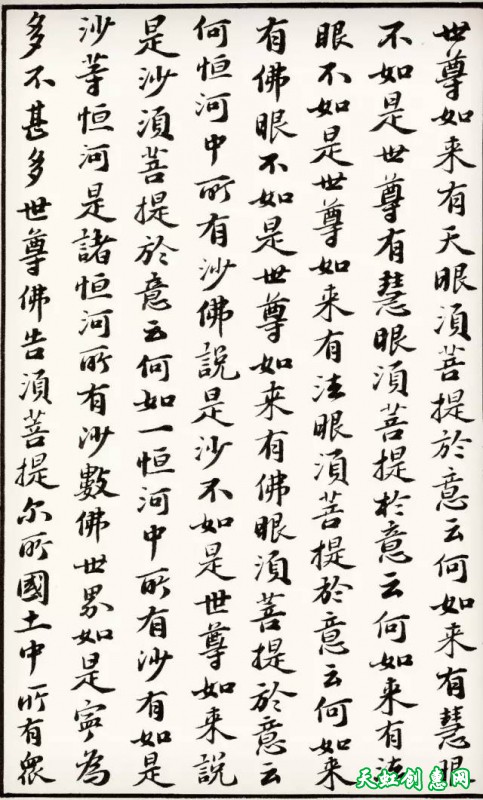 世尊如来有天眼須菩提於意云何如来有慧眼
不如是世尊有慧眼須菩提於意云何如来有法
眼不如是世尊如来有法眼須菩提於意云何如来
有佛眼不如是世尊如来有佛眼須菩提於意云
何恒河中所有沙佛說是沙不如是世尊如来說
是沙須菩提於意云何如一恒河中所有沙有如是
沙等恒河是諸恒河所有沙數佛世界如是寧為
多不甚多世尊佛告須菩提尔所國土中所有眾
天虹创意网